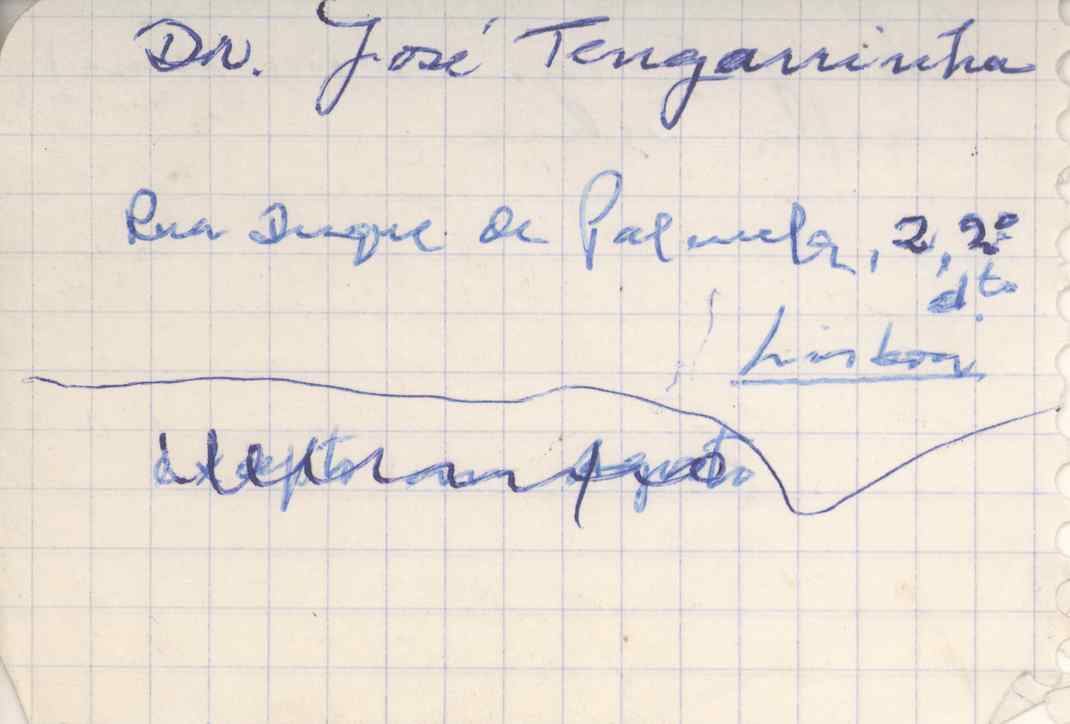 Dr. José Tengarrinha
Rua Duque de Palmela, 2, 2º
dto.
Lisboa